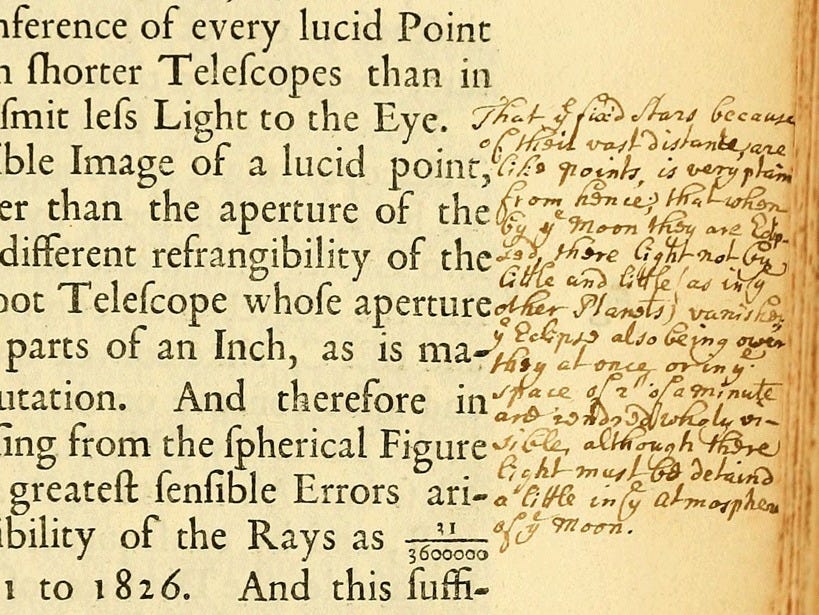 nference of every lucid Point
n ſhorter Teleſcopes than in
ſmit leſs Light to the Eye.
ible Image of a lucid point,
er than the aperture of the
different refrangibility of the
oot Teleſcope whoſe aperture
parts of an Inch, as is ma-
utation. And therefore in
ſing from the ſpherical Figure
greateſt ſenſible Errors ari-
ibility of the Rays as 31/3600000
1 to 1826. And this ſuffi-
That yͤ fixed Stars because
of their vast distante, are
like points, is very plain
from hence; that when
by yͤ Moon they are Ecly-
zed, there light not by
little and little (as in yͤ
other Planets) vanishes;
yͤ Eclipse also being over
they at once, or in yͤ
space of 2" of a minute
are rendred wholy vi-
sible, although there
light must be detaind
a little in yͤ Atmosphere
of yͤ Moon.